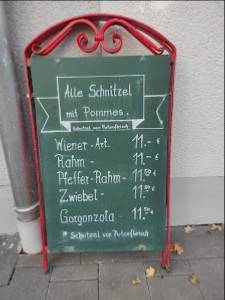 Alle Schnitzel
mit Pommes.
Schnitzel vom Putenfleisch
Wiener-Art. 11.- €
Rahm - 11.- €
Pfeffer-Rahm - 11.50 €
Zwiebel - 11.50 €
Gorgonzola - 11.50 €
* Schnitzel vom Putenfleisch